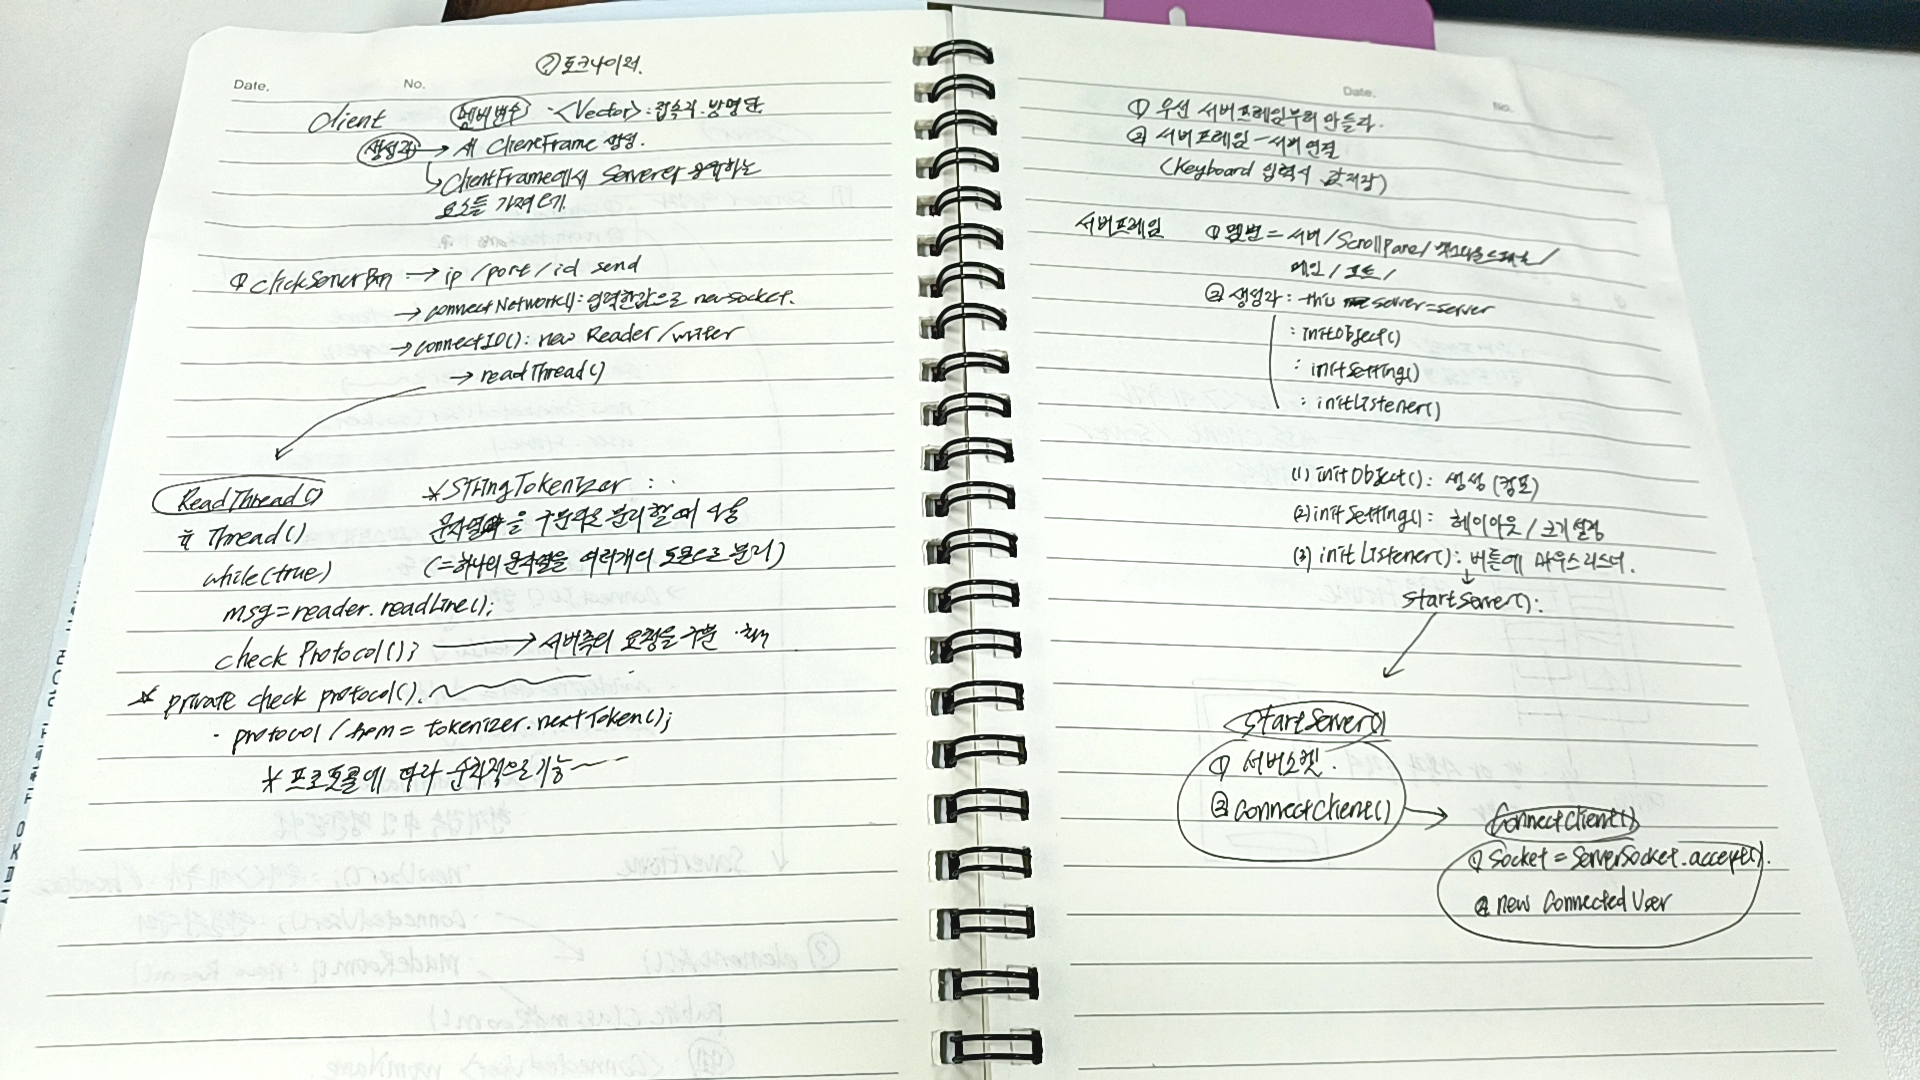 ② 토크나이저.
Date. No.
Client 멤버변수 - <Vector> : 접속자. 방명단
생성자 → 새 ClientFrame 생성.
ClientFrame에서 Server와 통합하는
요소들 가져오기.
① clickServerBtn → ip / port / id send
→ connectNetwork(): 입력한값으로 new socket.
→ connectIO(): new Reader / writer
→ readThread()
ReadThread() * StringTokenizer :
Thread() 문자열을 구분자로 분리할때 사용
while(true) (= 하나의 문자열을 여러개의 토큰으로 분리)
msg = reader.readLine();
check Protocol(); → 서버측의 요청을 구분
* private check protocol().
· protocol / from = tokenizer.nextToken();
* 프로토콜에 따라 순차적으로 기능~
Date. No.
① 우선 서버프레임부터 만들자.
② 서버프레임 - 서버 연결
(Keyboard 입력시 값저장)
서버프레임 ① 멤변 = 서버 / ScrollPane /
메인 / 포트 /
② 생성자 : this server = server
: initObject()
: initSetting()
: initListener()
(1) initObject(): 생성 (컴포)
(2) initSetting(): 레이아웃 / 크기 설정
(3) initListener(): 버튼에 마우스리스너.
↓
startServer():
startServer()
① 서버소켓.
② connectClient() →
connectClient()
① Socket = ServerSocket.accept().
② new ConnectedUser